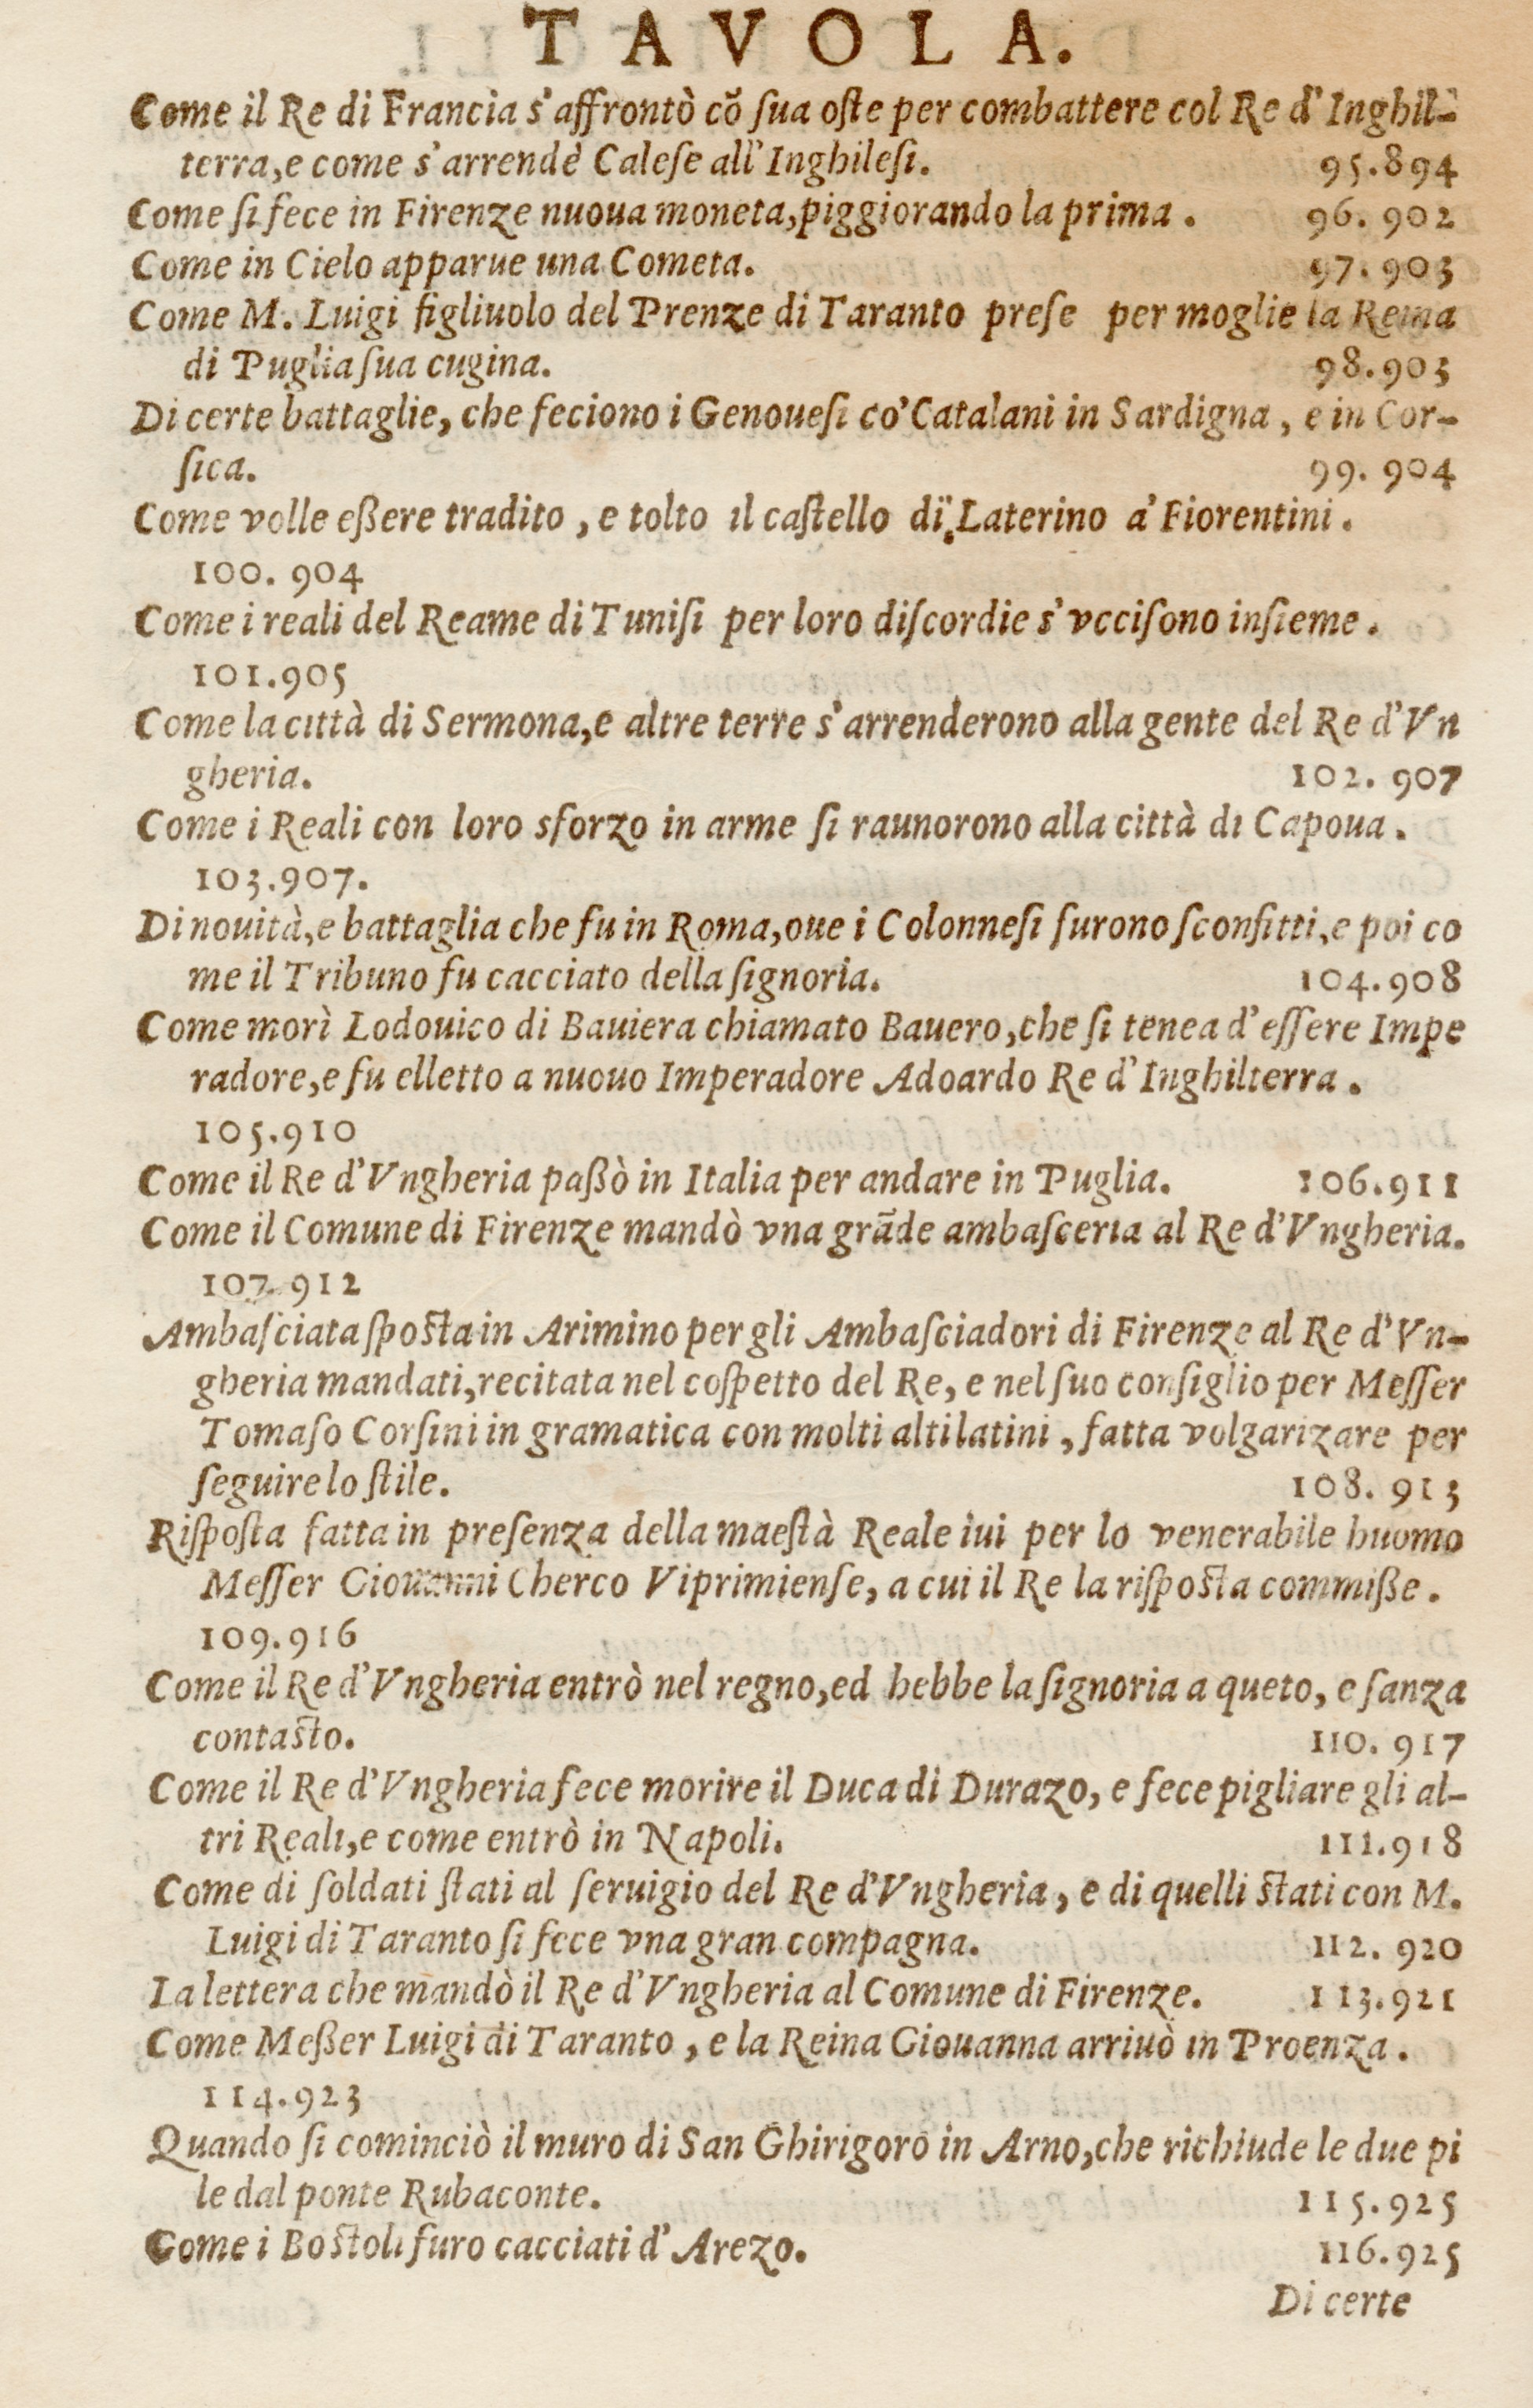 TAVOLA.
Come il Re di Francia s'affrontò cõ ſua oſte per combattere col Re d'Inghil-
terra,e come s'arrendè Caleſe all'Inghileſi. 95.894
Come ſi fece in Firenze nuoua moneta,piggiorando la prima. 96. 902
Come in Cielo apparue una Cometa. 97. 903
Come M. Luigi figliuolo del Prenze di Taranto preſe per moglie la Reina
di Puglia ſua cugina. 98.903
Di certe battaglie, che feciono i Genoueſi co'Catalani in Sardigna, e in Cor-
ſica. 99. 904
Come volle eßere tradito, e tolto il caſtello di Laterino a' Fiorentini.
100. 904
Come i reali del Reame di Tuniſi per loro diſcordie s'vcciſono inſieme.
101.905
Come la città di Sermona,e altre terre s'arrenderono alla gente del Re d'Vn
gheria. 102. 907
Come i Reali con loro sforzo in arme ſi raunorono alla città di Capoua.
103.907.
Di nouità,e battaglia che fu in Roma,oue i Colonneſi furono ſconfitti,e poi co
me il Tribuno fu cacciato della ſignoria. 104.908
Come morì Lodouico di Bauiera chiamato Bauero,che ſi tenea d'eſſere Impe
radore,e fu elletto a nuouo Imperadore Adoardo Re d'Inghilterra.
105.910
Come il Re d'Vngheria paßò in Italia per andare in Puglia. 106.911
Come il Comune di Firenze mandò vna grãde ambaſceria al Re d'Vngheria.
107.912
Ambaſciata ſpoſta in Arimino per gli Ambaſciadori di Firenze al Re d'Vn-
gheria mandati,recitata nel coſpetto del Re, e nel ſuo conſiglio per Meſſer
Tomaſo Corſini in gramatica con molti alti latini, fatta volgarizare per
ſeguire lo ſtile. 108. 913
Riſpoſta fatta in preſenza della maeſtà Reale iui per lo venerabile huomo
Meſſer Giouanni Cherco Viprimienſe, a cui il Re la riſpoſta commiße.
109.916
Come il Re d'Vngheria entrò nel regno,ed hebbe la ſignoria a queto, e ſanza
contaſto. 110. 917
Come il Re d'Vngheria fece morire il Duca di Durazo, e fece pigliare gli al-
tri Reali,e come entrò in Napoli. 111.918
Come di ſoldati ſtati al ſeruigio del Re d'Vngheria, e di quelli ſtati con M.
Luigi di Taranto ſi fece vna gran compagna. 112. 920
La lettera che mandò il Re d'Vngheria al Comune di Firenze. 113.921
Come Meßer Luigi di Taranto, e la Reina Giouanna arriuò in Proenza.
114.923
Quando ſi cominciò il muro di San Ghirigoro in Arno,che richiude le due pi
le dal ponte Rubaconte. 115.925
Come i Boſtoli furo cacciati d'Arezo. 116.925
Di certe